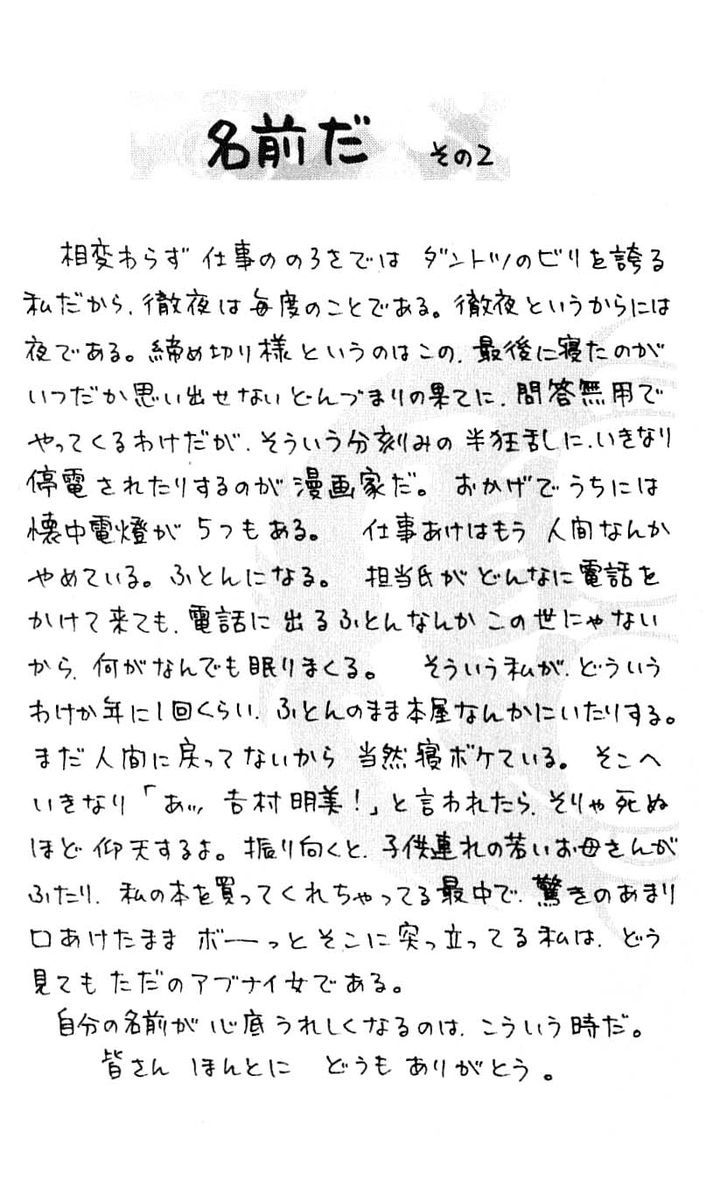 名前だ その2
相変わらず 仕事ののろさでは ダントツのビリを誇る
私だから、徹夜は毎度のことである。徹夜というからには
夜である。締め切り様というのはこの、最後に寝たのが
いつだか思い出せないどんづまりの果てに、問答無用で
やってくるわけだが、そういう分刻みの半狂乱に、いきなり
停電されたりするのが漫画家だ。 おかげでうちには
懐中電燈が 5つもある。 仕事あけはもう 人間なんか
やめている。ふとんになる。 担当氏がどんなに電話を
かけて来ても、電話に出るふとんなんかこの世にゃない
から、何がなんでも眠りまくる。 そういう私が、どういう
わけか年に1回くらい、ふとんのまま本屋なんかにいたりする。
まだ人間に戻ってないから 当然寝ボケている。そこへ
いきなり「あっ、吉村明美!」と言われたら、そりゃ死ぬ
ほど仰天するよ。振り向くと、子供連れの若いお母さんが
ふたり、私の本を買ってくれちゃってる最中で、驚きのあまり
口あけたまま ボーーっとそこに突っ立ってる私は、どう
見てもただのアブナイ女である。
自分の名前が心底うれしくなるのは、こういう時だ。
皆さん ほんとに どうもありがとう。